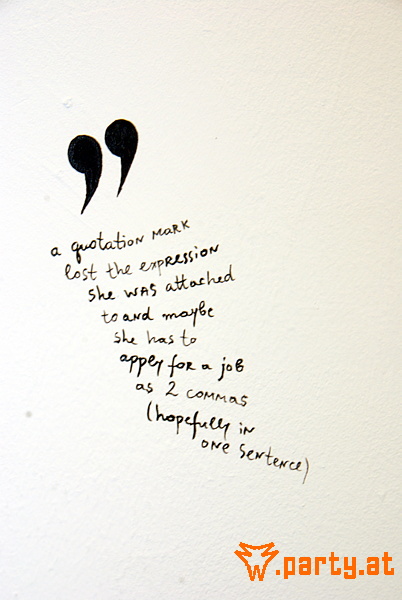 ”
a quotation mark
lost the expression
she was attached
to and maybe
she has to
apply for a job
as 2 commas
(hopefully in
one sentence)
w.party.at